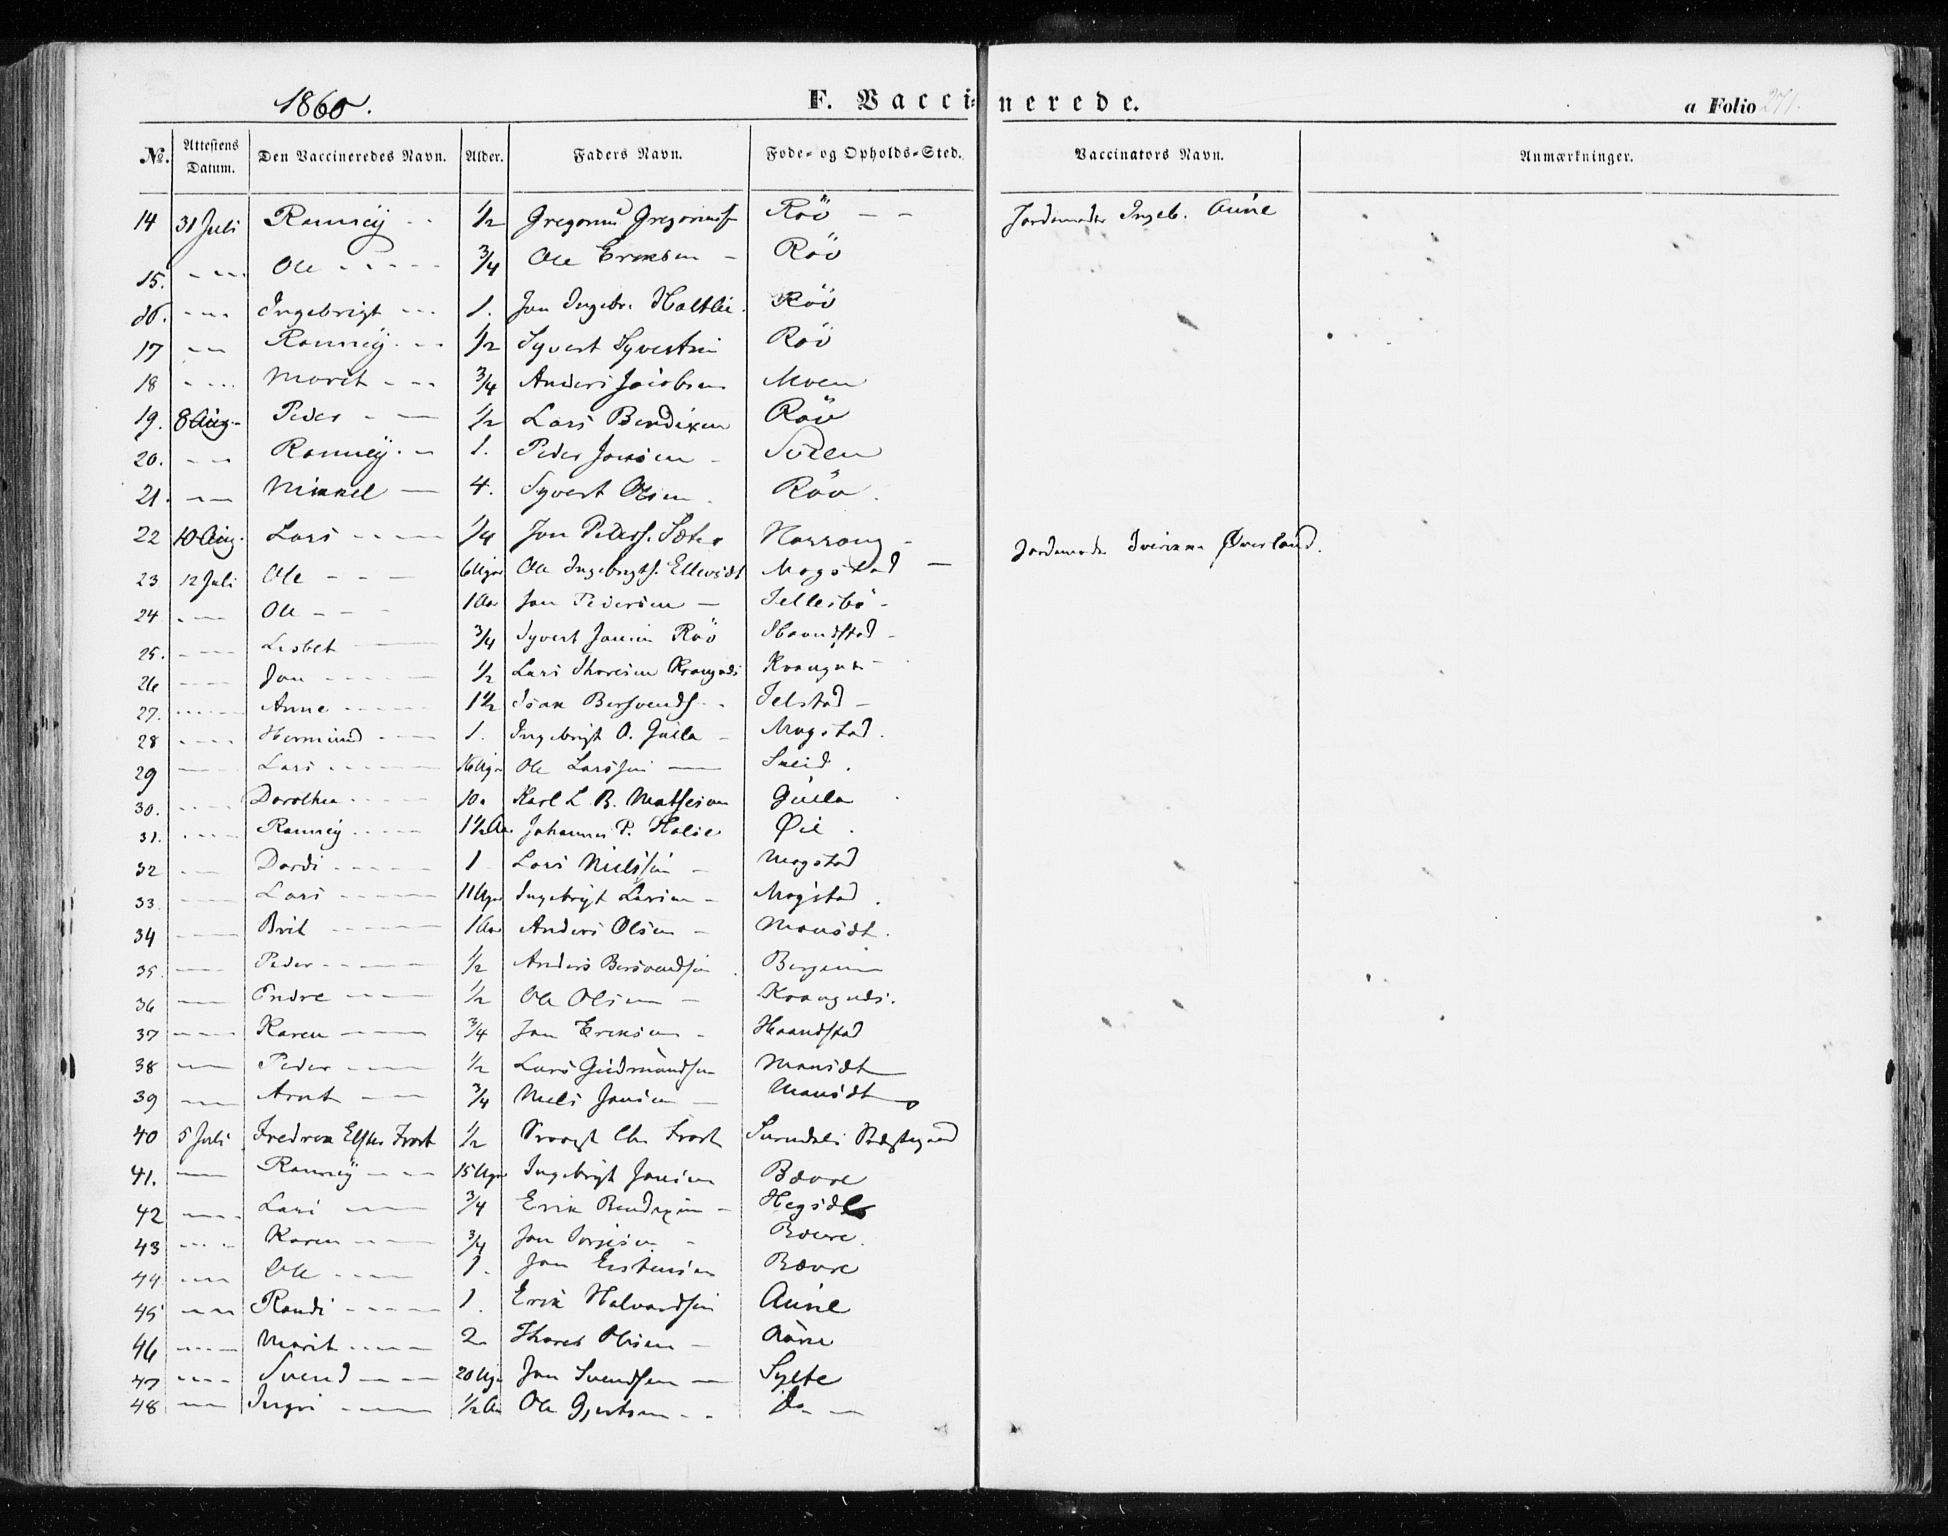 1860. F. Vaccinerede. a Folio 271.
№. Attestens Datum. Den Vaccineredes Navn. Alder. Faders Navn. Føde- og Opholds-Sted. Vaccinators Navn. Anmærkninger.
14 31 Juli Ranneÿ - - 1/2 Gregorius Røv - - Jordemoder Ingeb. Aune
15. - - - Ole - - - - 3/4 Ole Eriksen - Røv
16. - - - Ingebrigt - - - 1. Jon Ingebr. Holtlie. Røv
17 - - Ranneÿ - - 1/2 Syvert Syvertsen Røv
18 - - - Marit - - - 3/4 Anders Jacobsen Moen
19. 8 Aug. Peder - - 1/2 Lars Bendixen Røv
20. - - Ranneÿ. - 1. Peder Jonsen -
21. - - Mikkel - 4. Syvert Olsen. Røv.
22 10 Aug. Lars - - - 1/4 Jon Peders. Sæter Harrang - Jordemoder Øverland.
23 12 Juli Ole - - - Ole Ingebrigts. Mogstad -
24 - - - Ole - - - 1 Aar Jon Pedersen - Tellesbø -
25. - - - Lisbet - 3/4 Syvert Jonsen Røv Haandstad -
26 - - - Jon - - - - 1/2 Lars Thoresen
27. - - - Anne - - - - 1 1/2 Isak Bersvends. - Telstad -
28 - - - Hermund - - - 1. Ingebrigt O. Gulla - Mogstad.
29 - - - Lars - - - - Ole Larssen -
30. - - - Dorothea - - - 10. Karl L. B. Mathesen Gulla
31. - - - Ranneÿ - - - 1 1/2 Aar Johannes P. Holie Øie.
32 - - - Dordi - - - - 1 Lars Nielssen - Mogstad
33. - - - Lars - - - - Ingebrigt Larsen - Mogstad.
34 - - - Brit - - - - 1 Aar Anders Olsen -
35. - - - Peder - - - - 1/2 Anders Bersvendsen.
36 - - - Endre - - - 1/2 Ole Olsen -
37 - - - Karen - - - 3/4 Jon Eriksen - Haandstad
38 - - - Peder - - - 1/2 Lars Gudmundsen
39 - - - Arnt - - - 3/4 Niels Jonsen -
40 5 Juli. Frost 1/2 Frost Surendals Præstegaard
41. - - Ranneÿ - - - Ingebrigt Jonsen Bævre
42 - - - Lars - - 3/4 Erik Bendixen -
43 - - - Karen - - - 3/4 Jon Bævre.
44 - - - Ole - - - 1. Jon Eistensen Bævre
45 - - - Randi - - - - 1. Erik Halvordsen Aune
46 - - - Marit - - - - 2 - Olsen - Aune
47 - - - Svend - - - Jon Svendsen - Sylte
48 - - - Ingri - - - 1/2 Aar Ole Gjertsen - - Do -